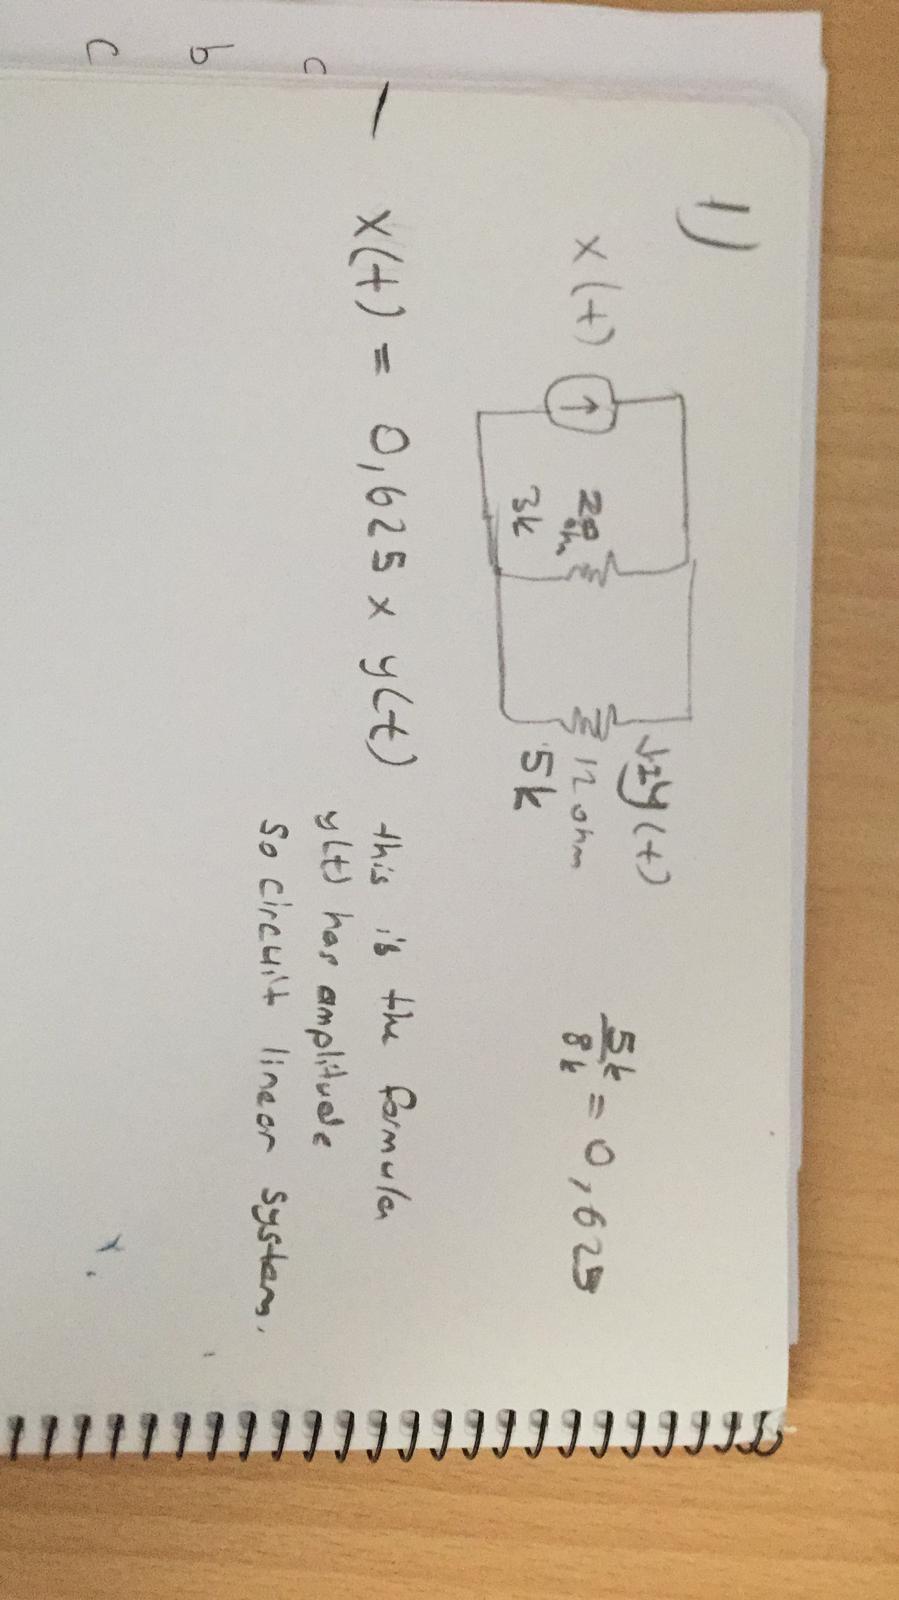 1)
x(t)
20 ohm
3k
↓I y(t)
12 ohm
5k
5k/8k = 0,625
x(t) = 0,625 x y(t) this is the formula
y(t) has amplitude
so circuit linear system.
c
b
c